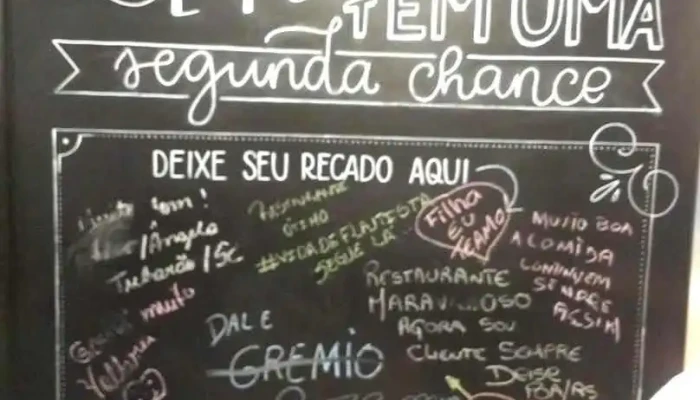 TEM UMA
segunda chance
DEIXE SEU RECADO AQUI
bom!
/Ângelo
Tubarão/SC
RESTAURANTE
ÓTIMO
#VIDADEFLANTESTA
SEGUE LÁ
Filha
EU
TEAMO
MUITO BOA
A COMIDA
CONTINUEM
SEMPRE
ASSIM
muito
RESTAURANTE
MARAVILHOSO
AGORA SOU
CLIENTE SEMPRE
DEISE
POA/RS
DALE
GREMIO